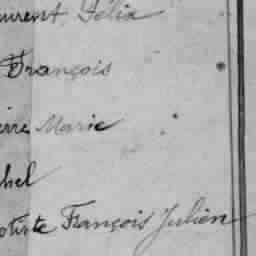 urent Félix
François
erre Marie
hel
ptiste François Julien